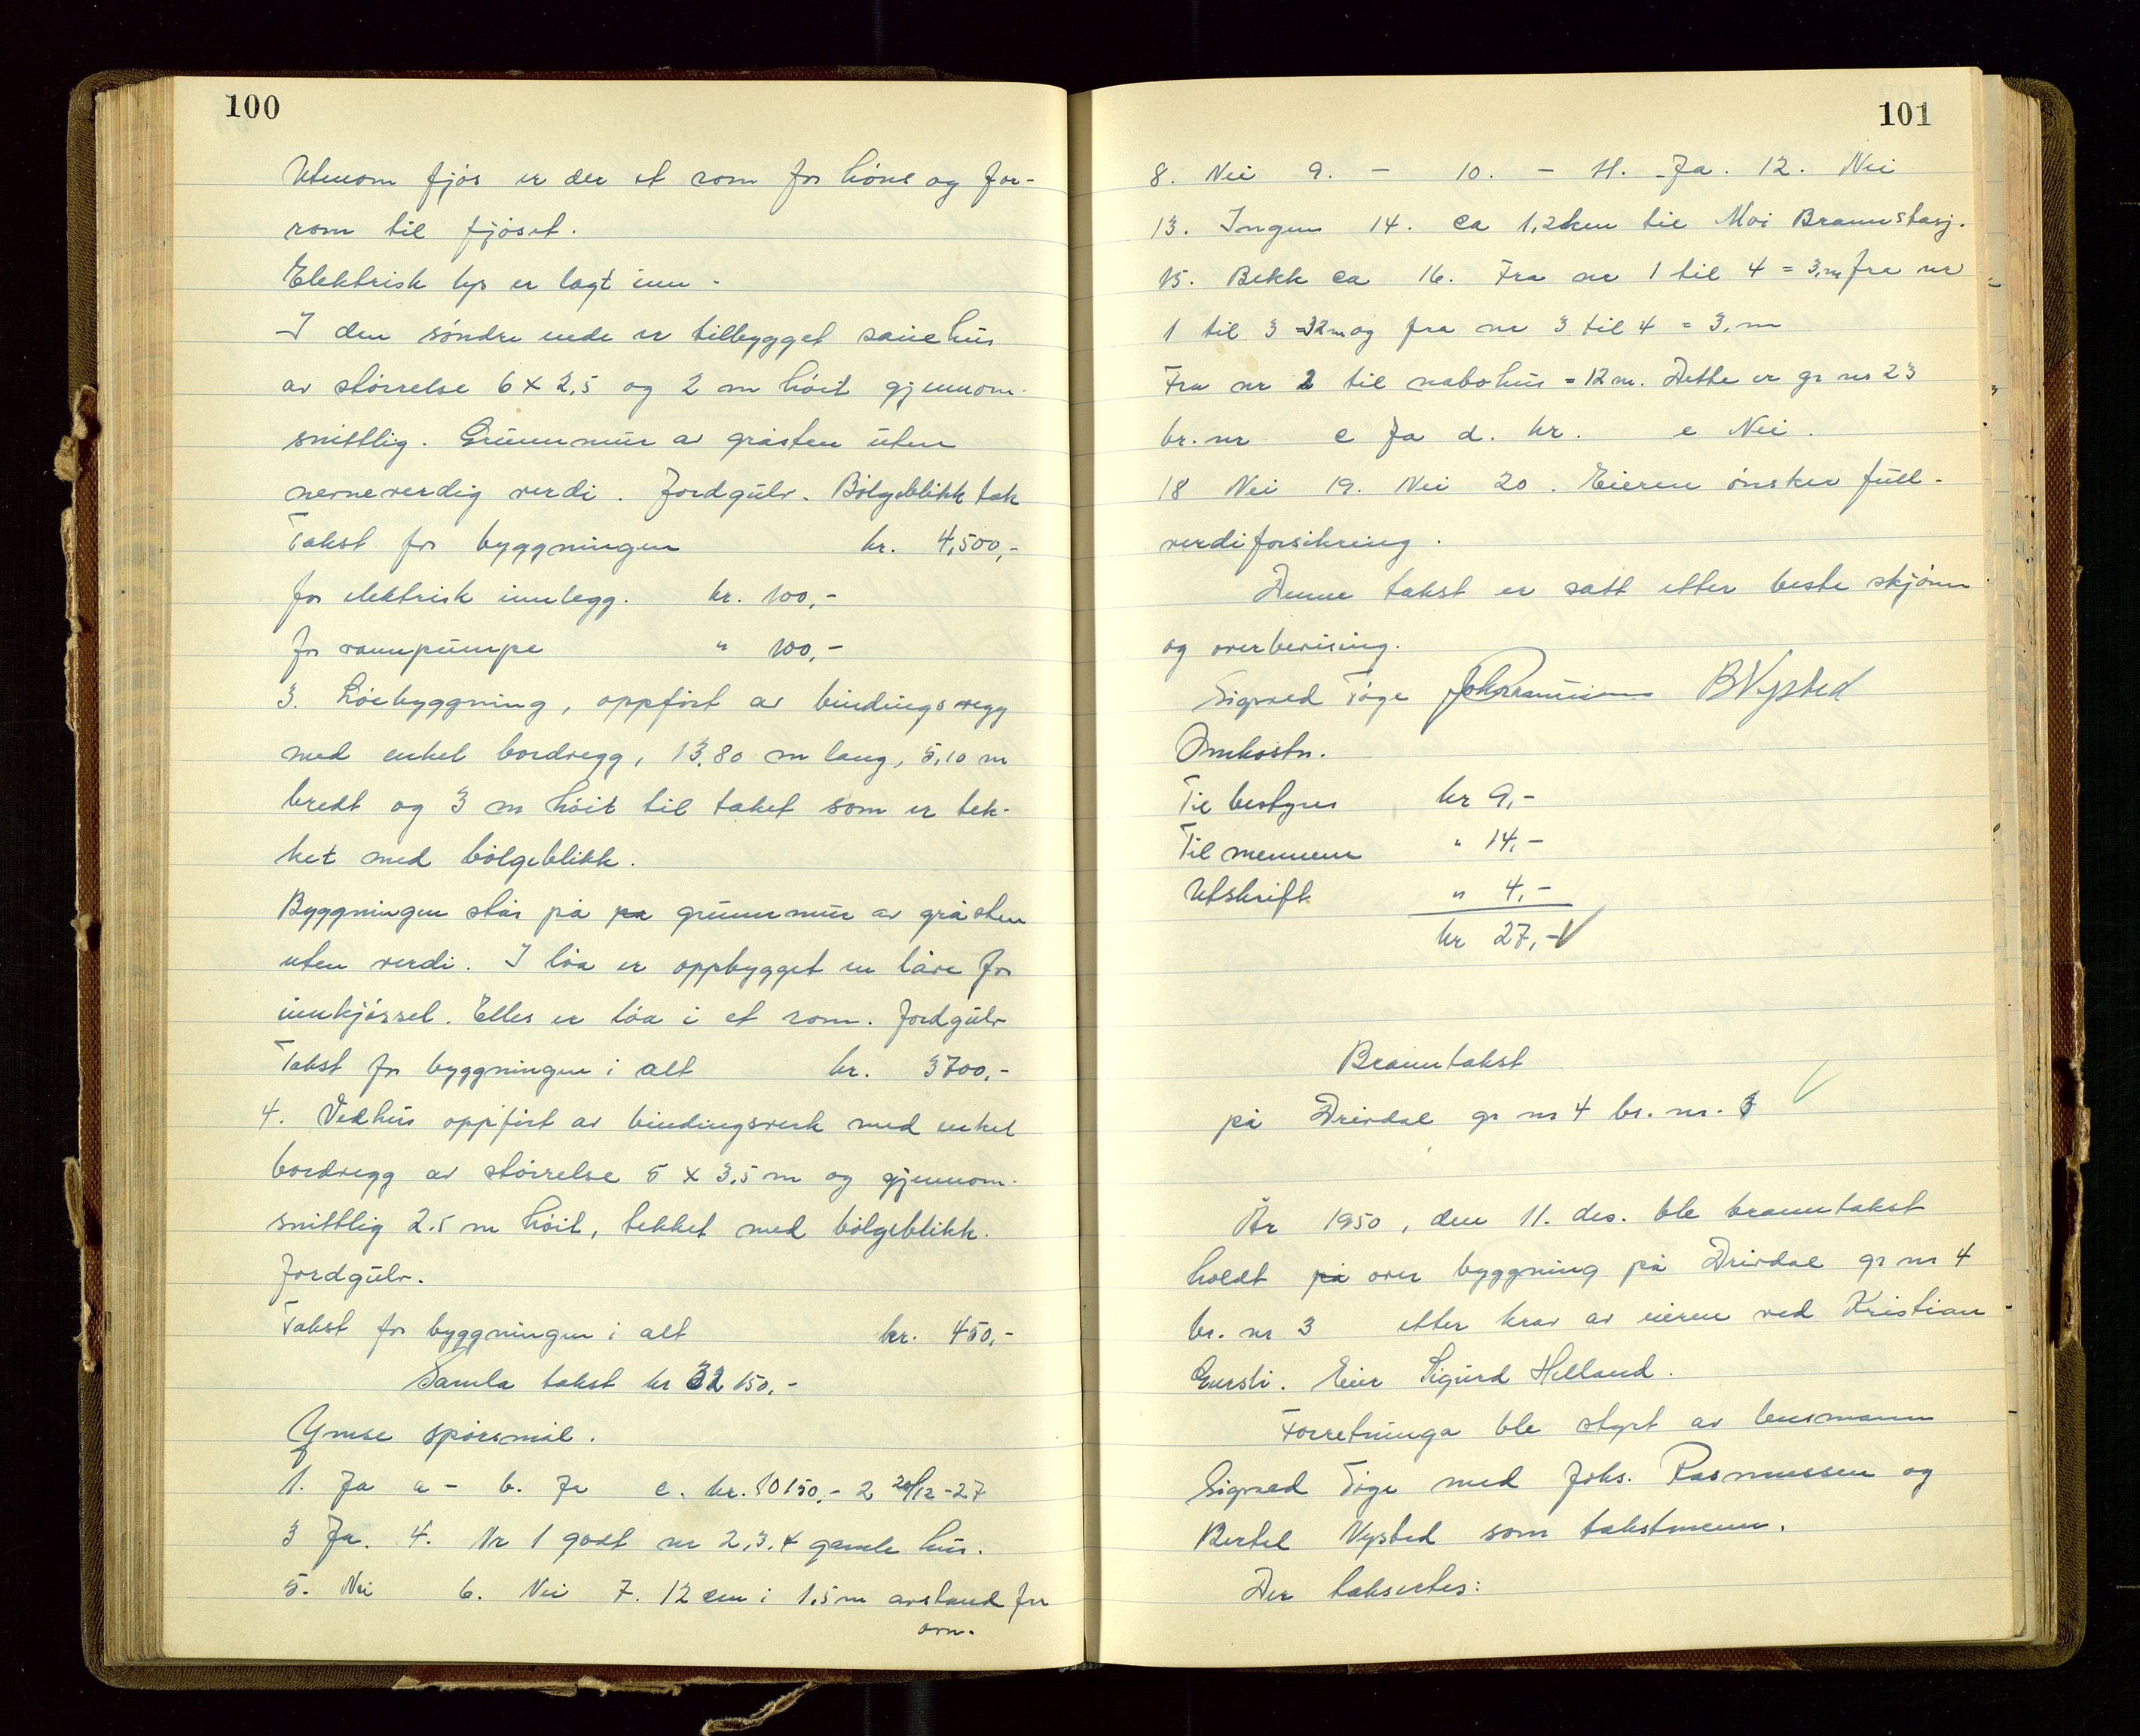 100
Utenom fjøs er der et rom for høns og for-
rom til fjøset.
Elektrisk lys er lagt inn.
I den søndre ende er tilbygget sauehus
av størrelse 6 x 2,5 og 2 m høit gjennom-
snittlig. Grunnmur av gråsten uten
nevneverdig verdi. Jordgulv. Bølgeblikk tak
Takst for byggningen kr. 4,500,-
for elektrisk innlegg. kr. 100,-
for vannpumpe " 100,-
3. Løebyggning, oppført av bindingsvegg
med enkel bordvegg, 13,80 m lang, 5,10 m
bredt og 3 m høit til taket som er tek-
ket med bølgeblikk.
Byggningen står på pa grunnmur av gråsten
uten verdi. I løa er oppbygget en låve for
innkjørsel. Elles er løa i et rom. Jordgulv
Takst for byggningen i alt kr. 3700,-
4. Vedhus oppført av bindingsverk med enkel
bordvegg av størrelse 5 x 3,5 m og gjennom-
snittlig 2.5 m høit, tekket med bølgeblikk.
Jordgulv.
Takst for byggningen i alt kr. 450,-
Samla takst kr 32 150,-
Ymse spørsmål.
1. Ja a - b. Ja c. kr. 10150,- 2 20/12-27
3 Ja. 4. Nr 1 godt nr 2,3,4 gamle hus.
5. Nei 6. Nei 7. 12 cm i 1,5 m avstand fra
ovn.
101
8. Nei 9. - 10. - 11. Ja. 12. Nei
13. Ingen 14. ca 1,2 km til Moi Brannstasj.
15. Bekk ca 16. Fra nr 1 til 4 = 3,m fra nr
1 til 3 = 32 m og fra nr 3 til 4 = 3,m
Fra nr 2 til nabohus = 12 m. Dette er gr nr 23
br. nr c Ja d. kr. e Nei.
18 Nei 19. Nei 20. Eieren ønsker full-
verdiforsikring.
Denne takst er satt etter beste skjønn
og overbevising.
Sigvald Tøge Joh Rasmussen B Nysted
Omkostn.
Til bestyrer kr 9,-
Til mennene " 14,-
Utskrift " 4,-
kr 27,-
Branntakst
på Drivdal gr nr 4 br. nr. 3
År 1950, den 11. des. ble branntakst
holdt på over byggning på Drivdal gr nr 4
br. nr 3 etter krav av eieren ved Kristian
Eier Sigurd Helland.
Forretninga ble styrt av lensmann
Sigvald Tøge med Johs. Rasmussen og
Bertel Nysted som takstmenn.
Der takseres: